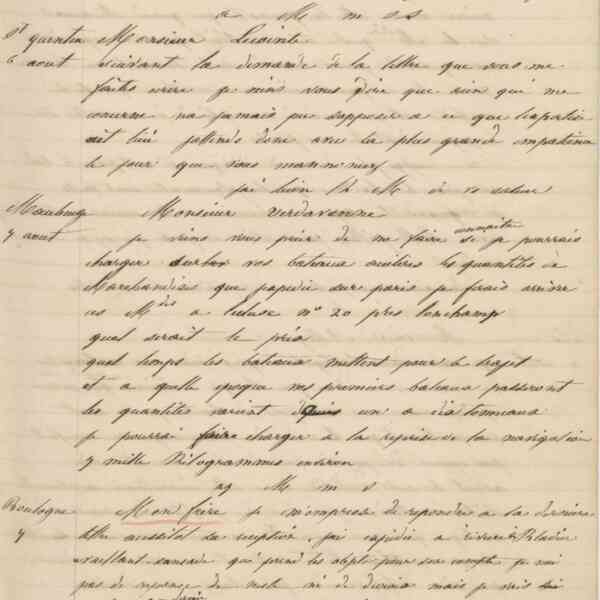 a M m s s
St quentin Monsieur Lecointe
6 aout suivant la demande de la lettre que vous me
faites ecrire je viens vous dire que rien qui me
concerne na jamais pu supposer a ce que lexpertise
ait lieu jattends donc avec la plus grande impatience
le jour que vous
jai bien lh M de vs saluer
Maubeuge Monsieur Verdavenne
7 aout je viens vous prier de me faire connaitre si je pourrais
charger sur vos bateaux les quantités de
Marchandises que jexpedie sur paris je ferais arriver
ces Mdes a lecluse n° 20 pres lonchamp
quel serait le prix
quel temps les bateaux mettent pour le trajet
et a quelle epoque vos premiers bateaux passeront
les quantités varient depuis un a dix tonneaux
je pourrai faire charger a la reprise de la navigation
7 mille Kilogrammes environ
M m s
Boulogne Mon frère je m'empresse de repondre a ta derniere
7 lettre aussitot sa reception, jai expedié a
vaillant sansade qui prend les objets pour son compte je nai
pas de reponse de reste ni de mais je vais